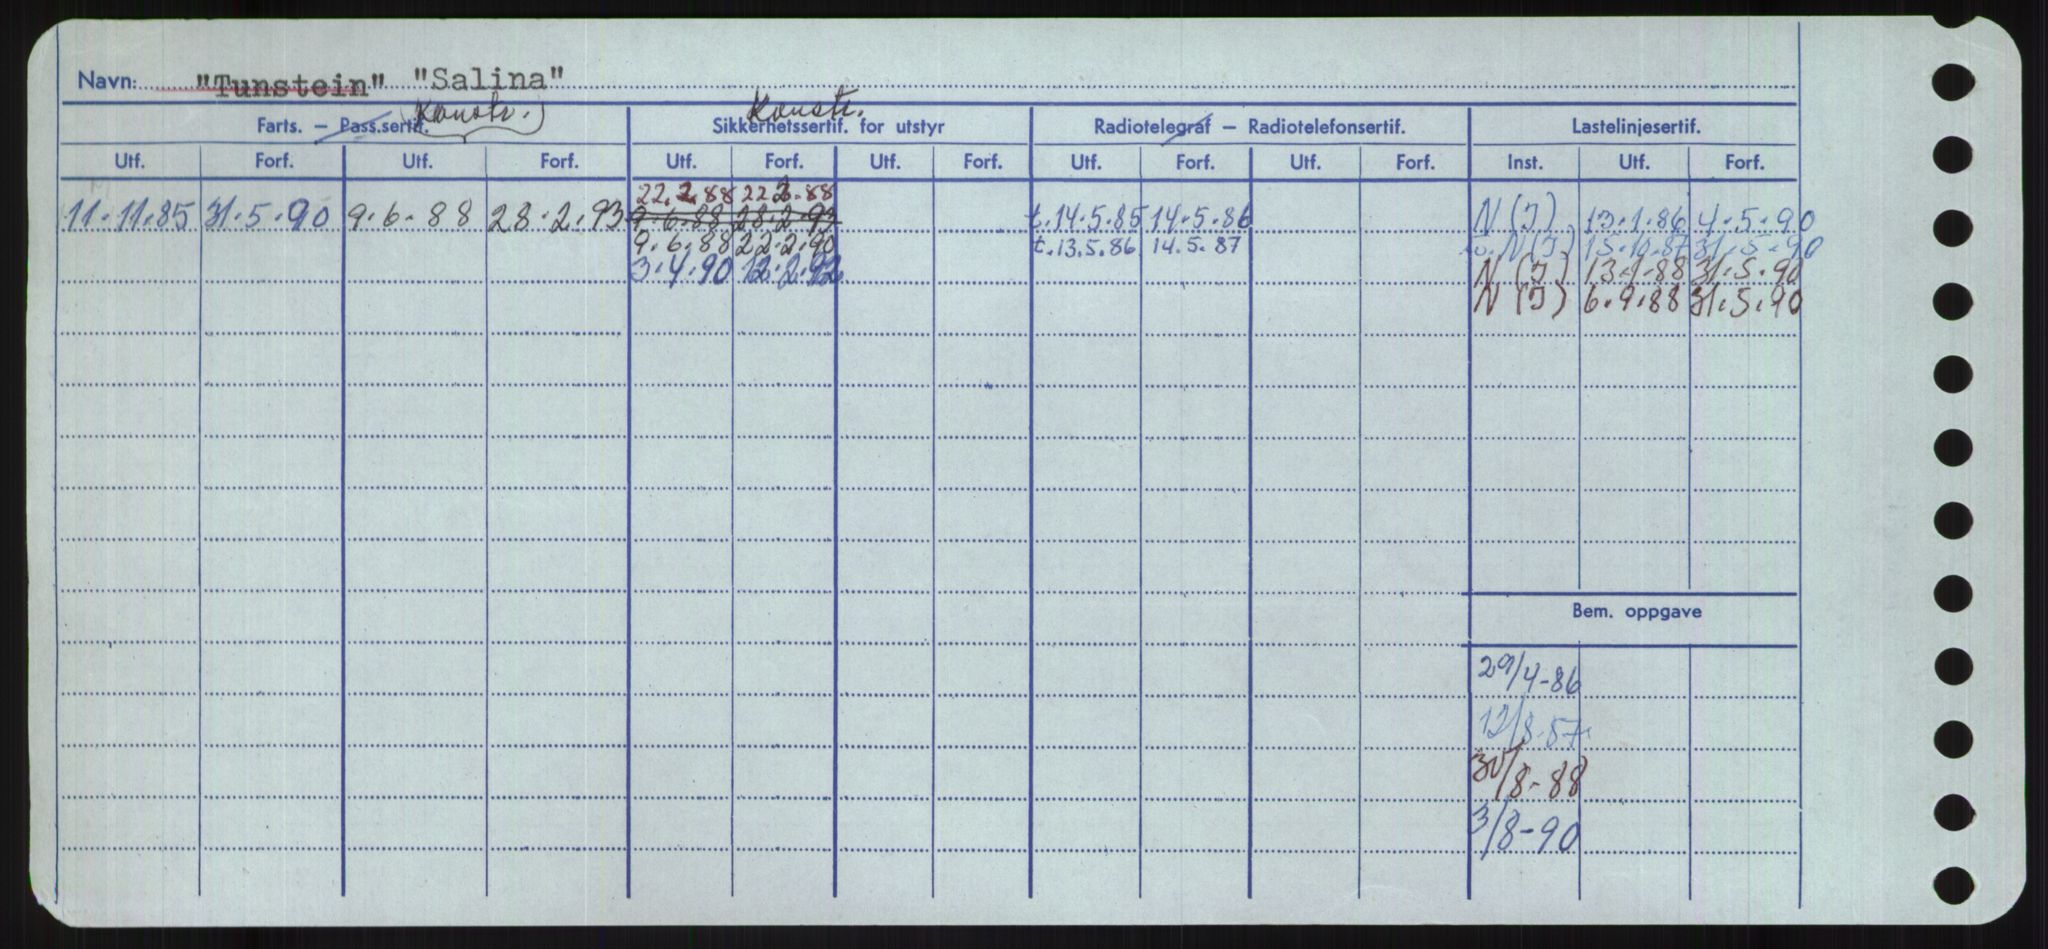 Navn: "Tunstein" "Salina"
Konstr. Konstr.
Farts. — Pass.sertif. Sikkerhetssertif. for utstyr Radiotelegraf — Radiotelefonsertif. Lastelinjesertif.
Utf. Forf. Utf. Forf. Utf. Forf. Utf. Forf. Utf. Forf. Utf. Forf. Inst. Utf. Forf.
22.2.88 22.2.88
11.11.85 31.5.90 9.6.88 28.2.93 9.6.88 28.2.93 t.14.5.85 14.5.86 N(I) 13.1.86 4.5.90
9.6.88 22.2.90 t.13.5.86 14.5.87 N(I) 15.10.87 31.5.90
3.4.90 N(I) 13.1.88 31.5.90
N(I) 6.9.88 31.5.90
Bem. oppgave
29/4-86
12/8-87
30/8-88
3/8-90